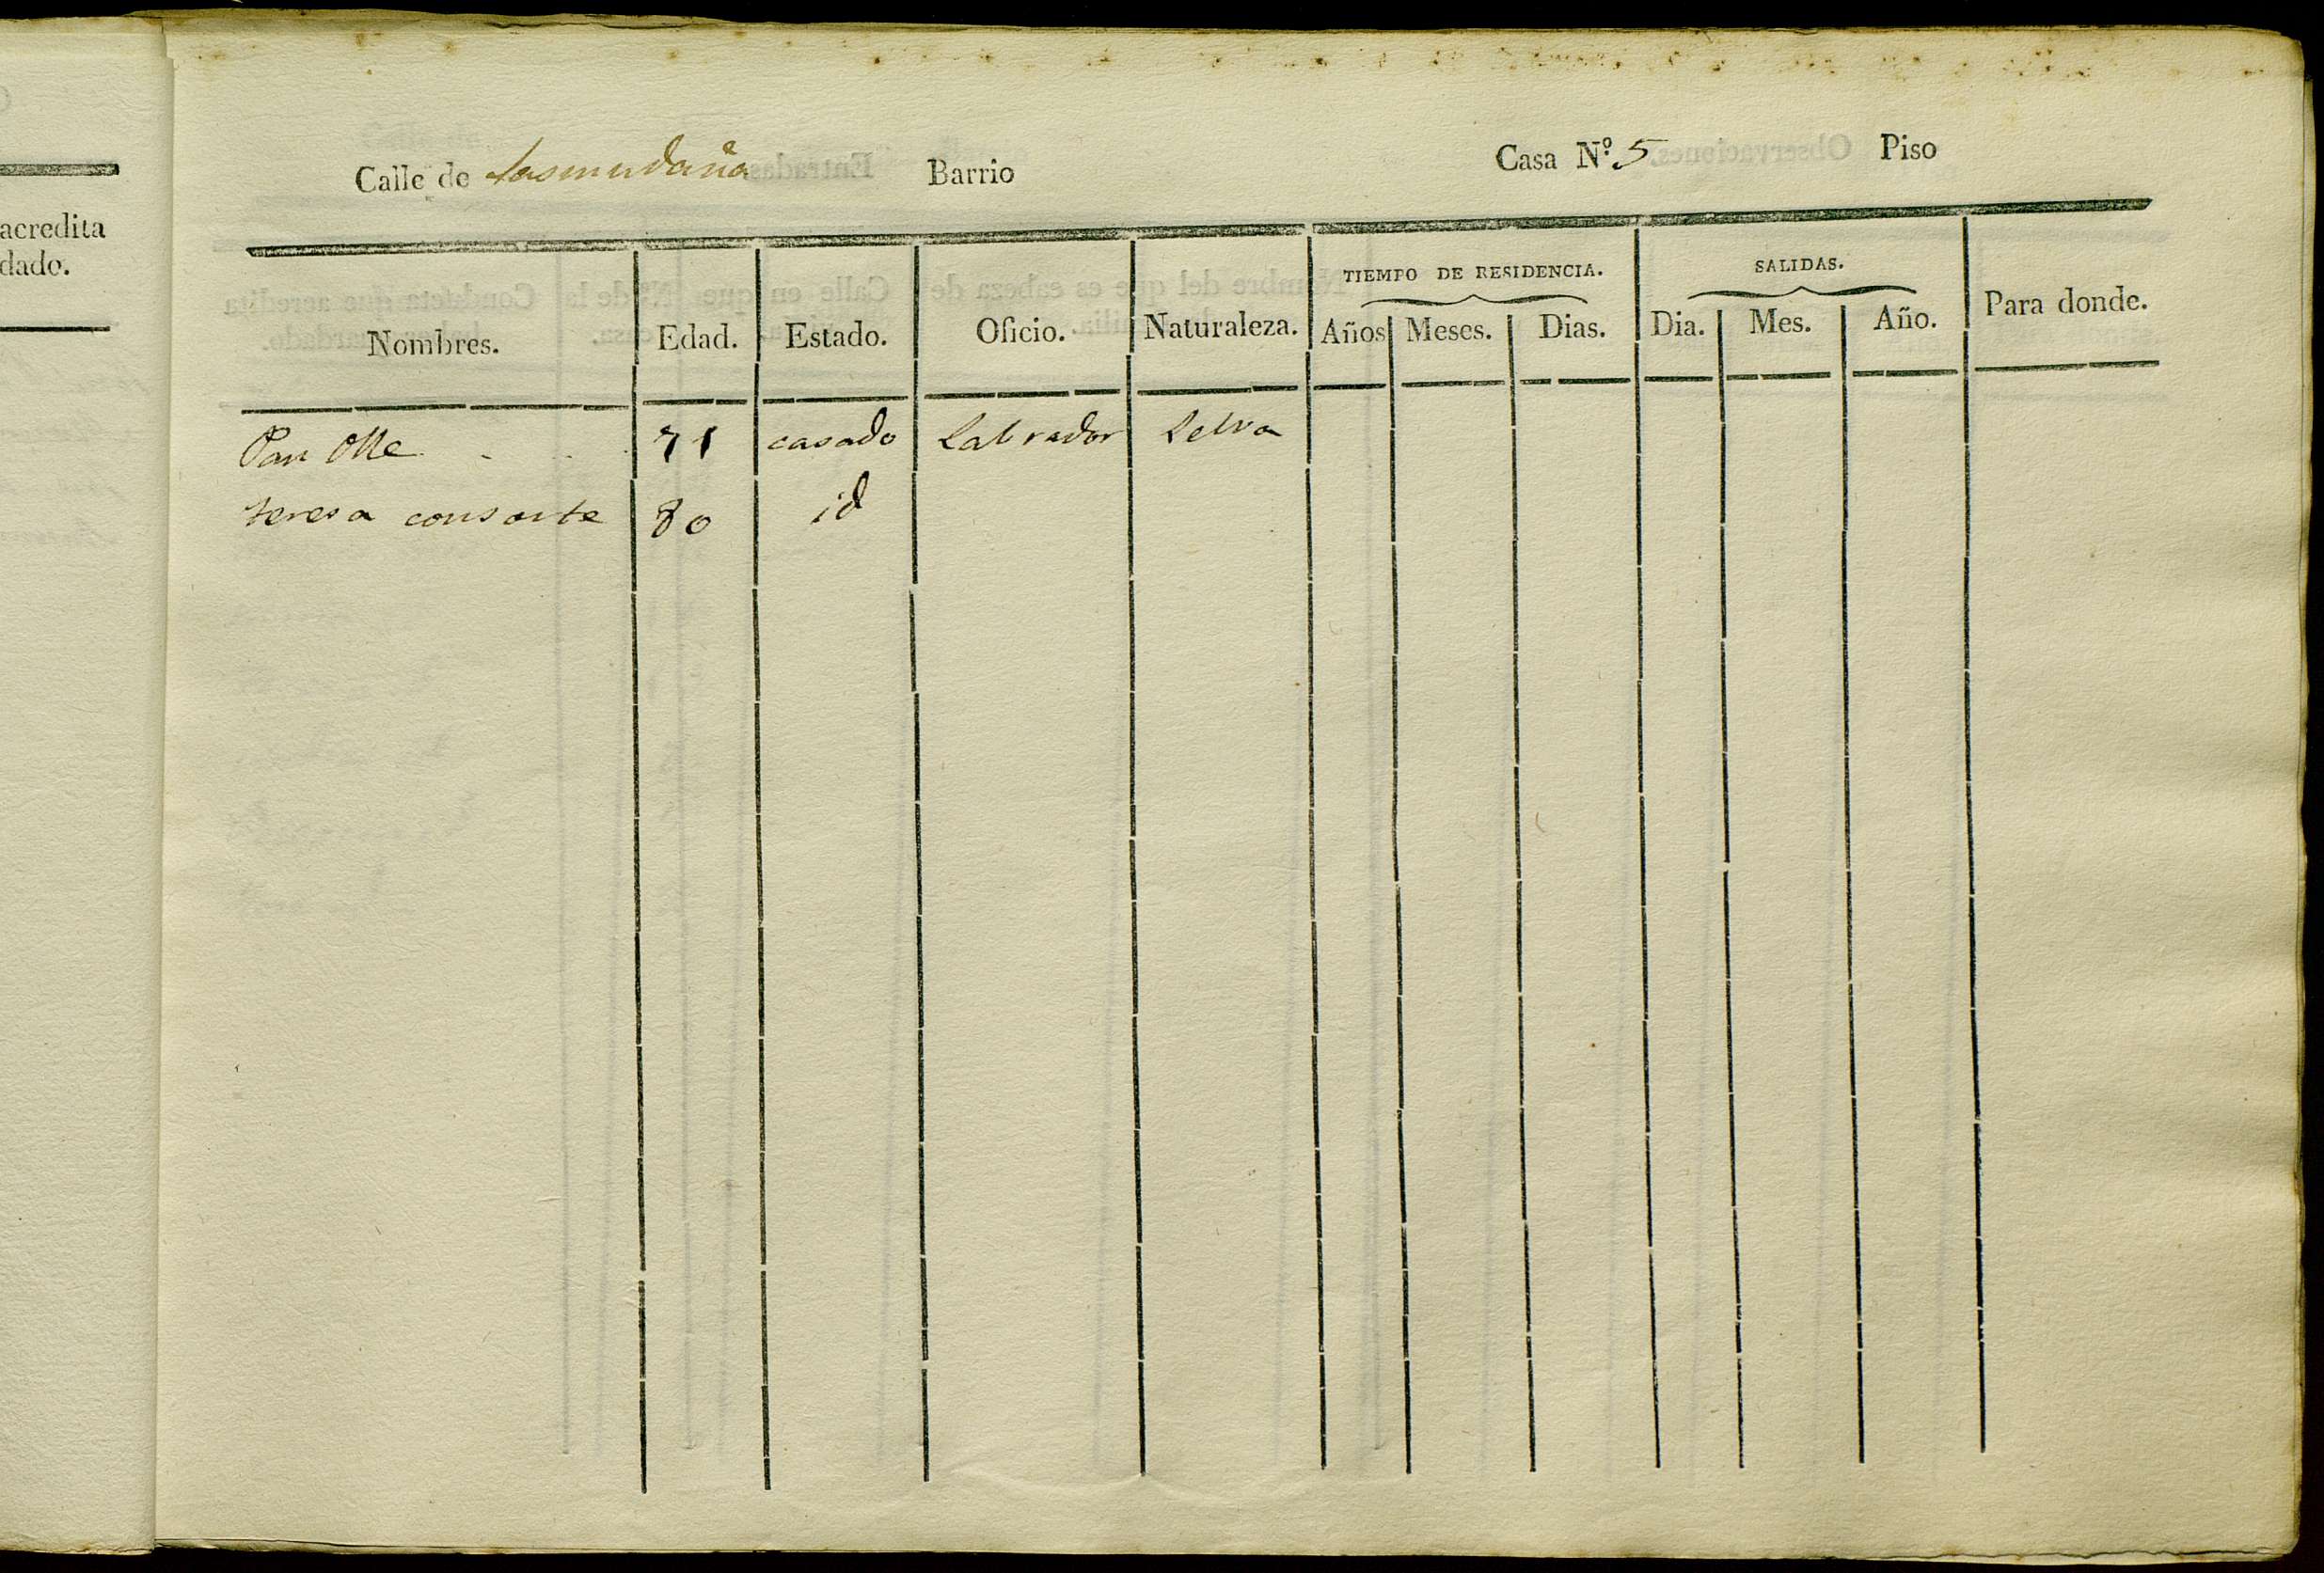 acredita
dado.
Calle de Barrio Casa Nº 5 Piso
Nombres. Edad. Estado. Oficio. Naturaleza. TIEMPO DE RESIDENCIA. Años Meses. Dias. SALIDAS. Dia. Mes. Año. Para donde.
Pau Olle 71 casado Labrador Selva
teresa consorte 80 id